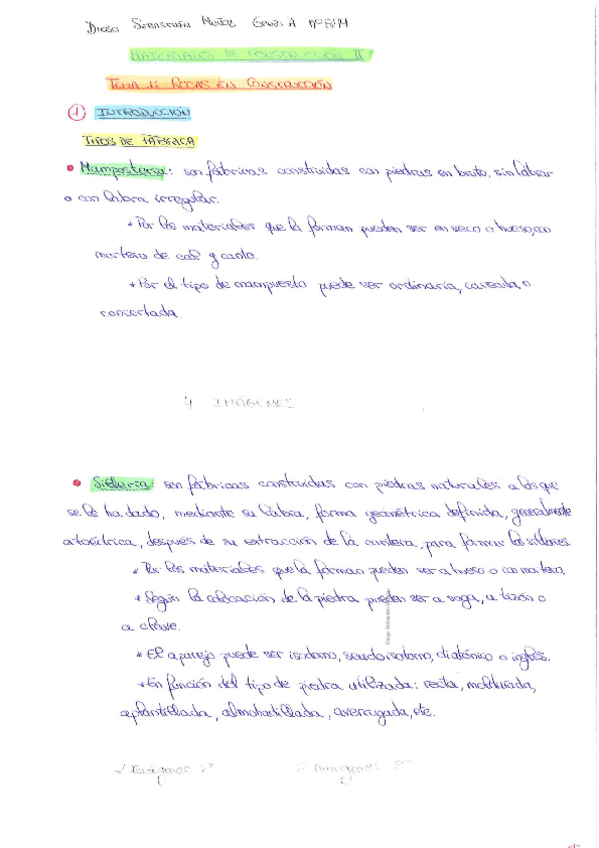 DIEGO SEBASTIÁN MUÑOZ GRUPO A Nº
MATERIALES DE CONSTRUCCIÓN II
TEMA 1: ROCAS EN CONSTRUCCIÓN
① INTRODUCCIÓN
TIPOS DE FÁBRICA
• Mampostería: son fábricas construidas con piedras en bruto, sin labrar
o con labra irregular.
* Por los materiales que la forman pueden ser en seco o hueso, con
mortero de cal y canto.
* Por el tipo de mampuesto puede ser ordinaria, careada, o
concertada
4 IMÁGENES
• Sillería: son fábricas construidas con piedras naturales a las que
se le ha dado, mediante su labra, forma geométrica definida, generalmente
ortoédrica, después de su extracción de la cantera, para formar los sillares.
* Por los materiales que la forman pueden ser a hueso o con mortero.
* Según la colocación de la piedra pueden ser a soga, a tizón o
a clave.
* El aparejo puede ser isódomo, seudoisódomo, diatónico o inglés.
* En función del tipo de piedra utilizada: recta, moldurada,
aplantillada, almohadillada, averrugada, etc.
2 Imágenes
Imágenes
Diego Sebastián